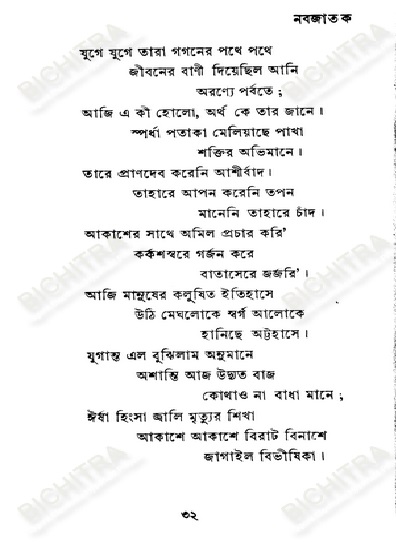 নবজাতক
যুগে যুগে তারা গগনের পথে পথে
জীবনের বাণী দিয়েছিল আনি
অরণ্যে পর্বতে ;
আজি এ কী হোলো, অর্থ কে তার জানে ।
স্পর্ধা পতাকা মেলিয়াছে পাখা
শক্তির অভিমানে ।
তারে প্রাণদেব করেনি আশীর্বাদ ।
তাহারে আপন করেনি তপন
মানেনি তাহারে চাঁদ ।
আকাশের সাথে অমিল প্রচার করি'
কর্কশস্বরে গর্জন করে
বাতাসেরে জর্জরি' ।
আজি মানুষের কলুষিত ইতিহাসে
উঠি মেঘলোকে স্বর্গ আলোকে
হানিছে অট্টহাসে ।
যুগান্ত এল বুঝিলাম অনুমানে
অশান্তি আজ উদ্যত বাজ
কোথাও না বাধা মানে ;
ঈর্ষা হিংসা জ্বালি মৃত্যুর শিখা
আকাশে আকাশে বিরাট বিনাশে
জাগাইল বিভীষিকা ।
৩২
BICHITRA
BICHITRA
BICHITRA
BICHITRA
BICHITRA
BICHITRA